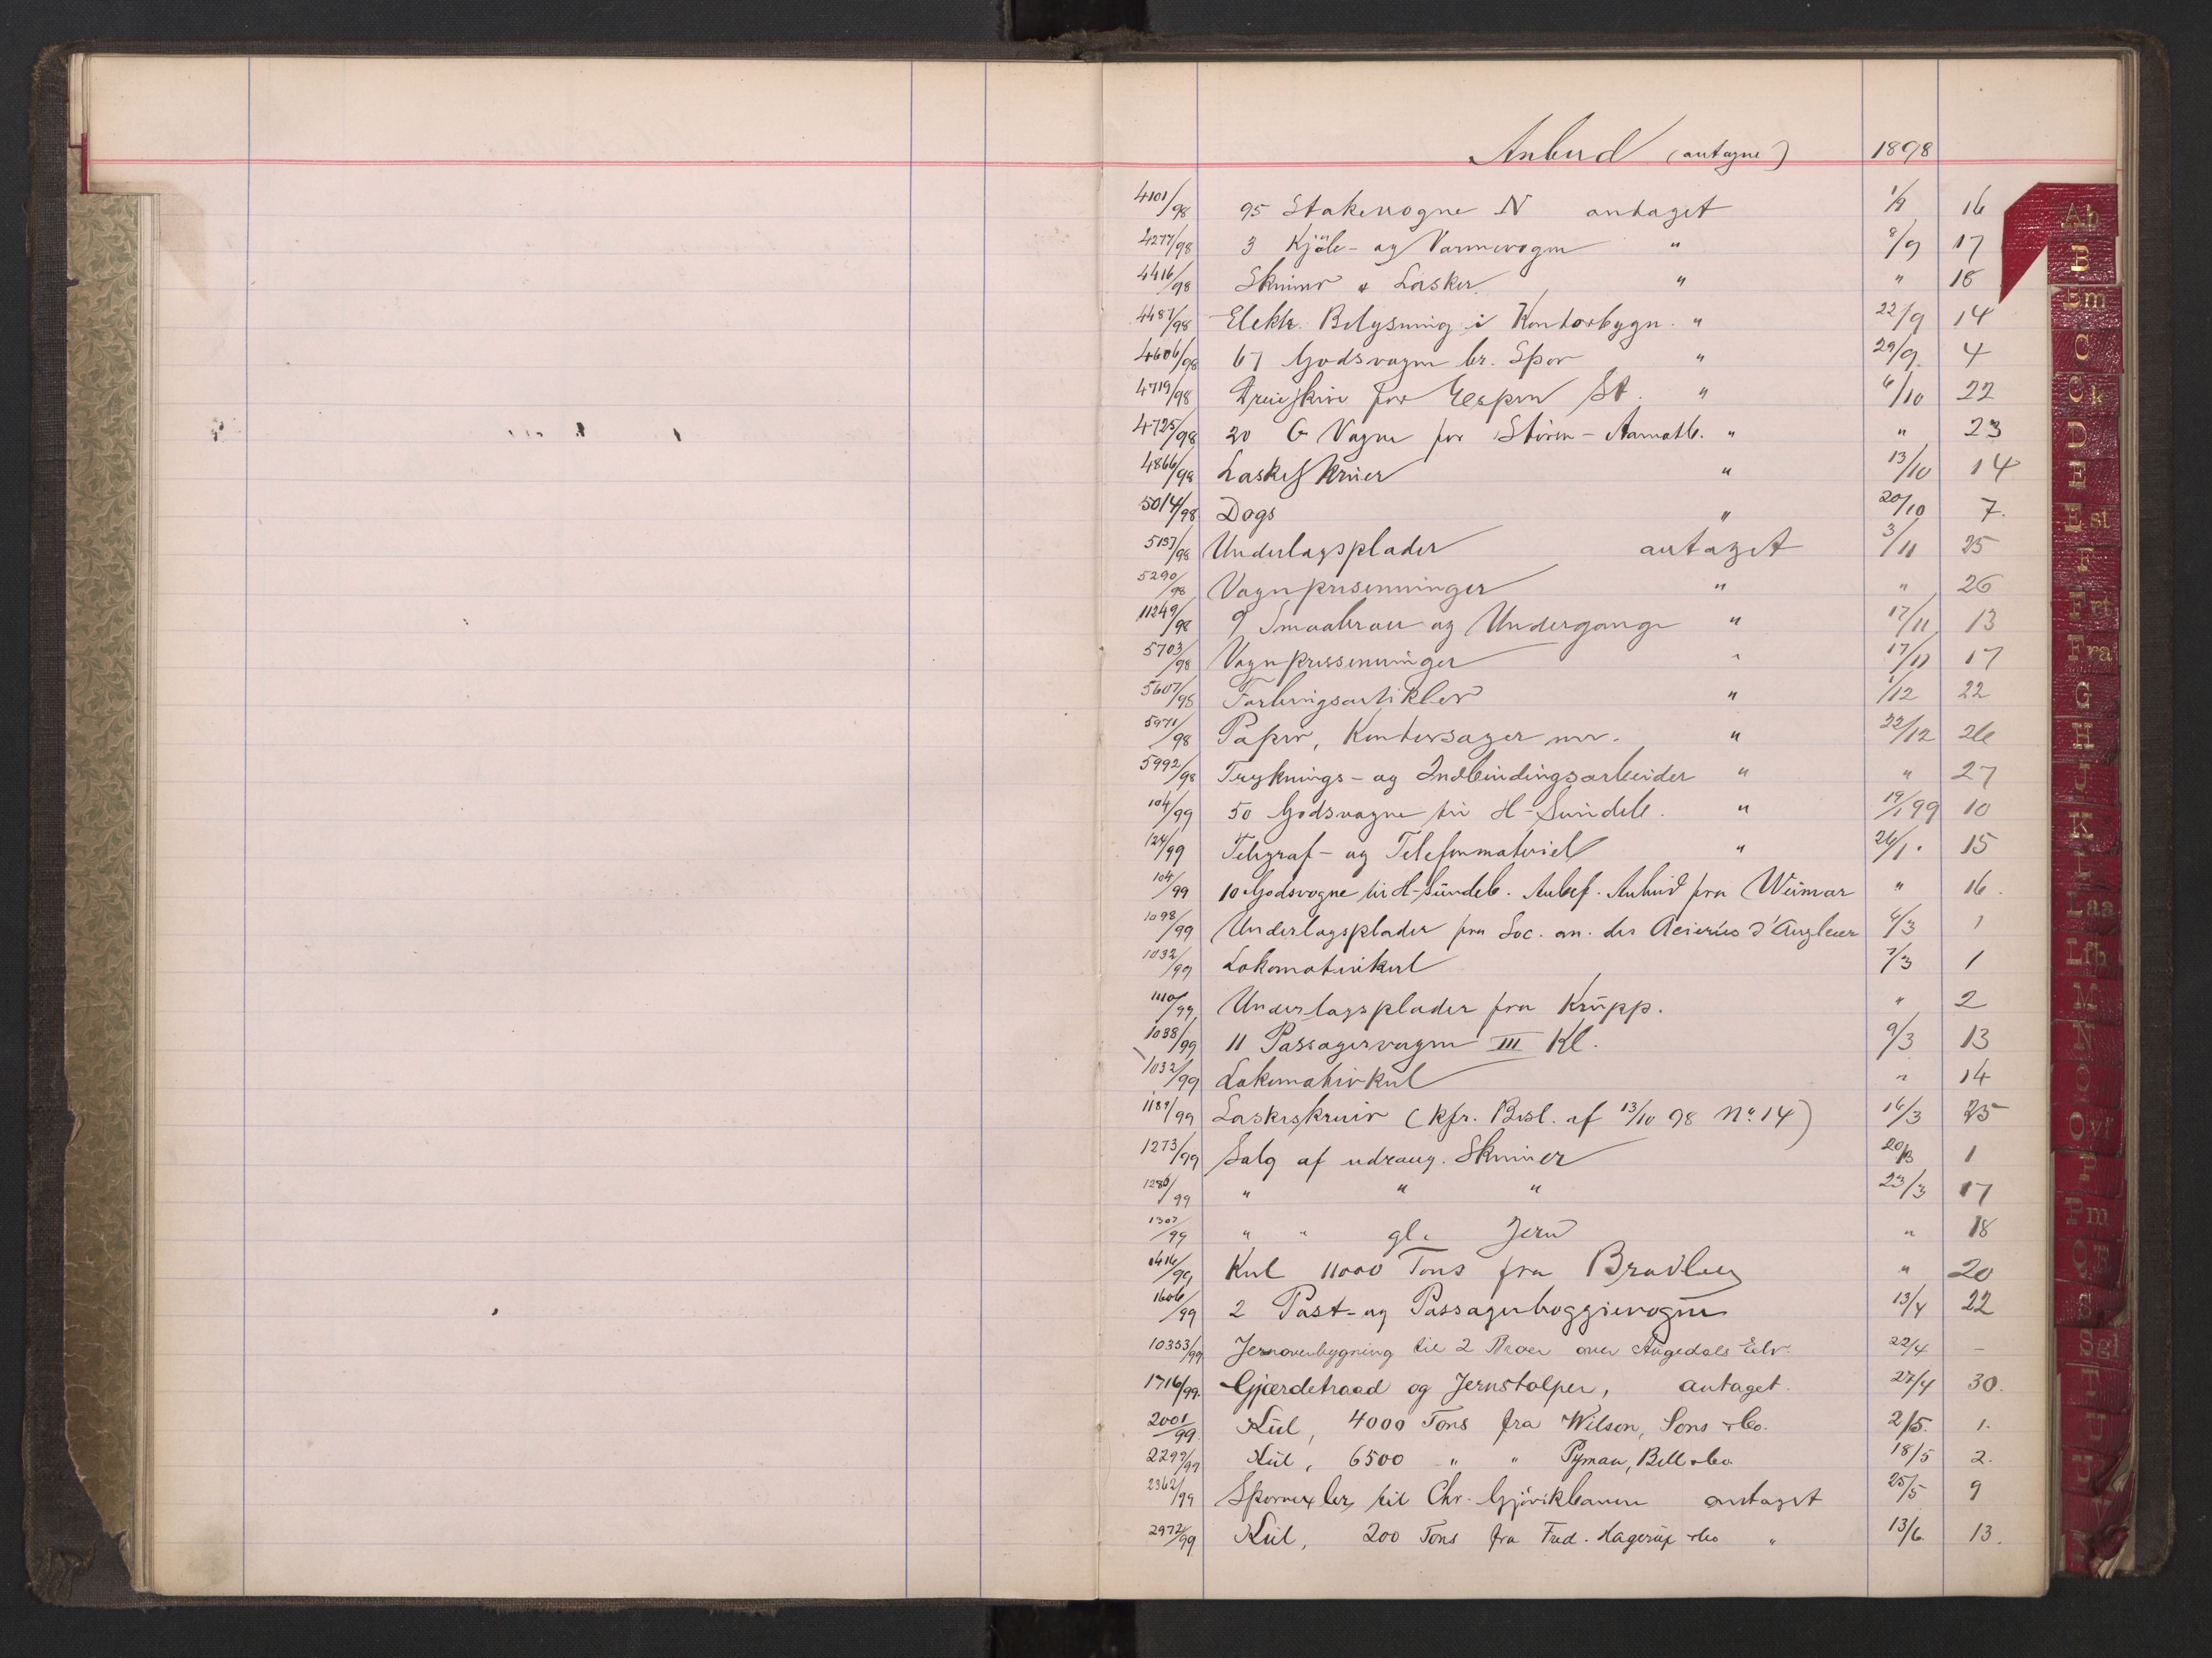 Anbud (antagne) 1898
4101/98 95 Stakevogne N antaget 1/9 16
4277/98 3 Kjöle- og Varmevogne " 8/9 17
4416/98 Skinner & Lasker " " 18
4487/98 Elektr. Belysning i Kontorbygn. " 22/9 14
4606/98 67 Godsvogne br. Spor " 29/9 4
4719/98 Dreieskive for Espen St. " 6/10 22
4725/98 20 G Vogne for Stören-Aamotb. " " 23
4866/98 Laskeskruer " 13/10 14
5014/98 Dogs " 20/10 7.
5137/98 Underlagsplader antaget 3/11 25
5290/98 Vognpresenninger " " 26
11249/98 9 Smaabroer og Undergange " 17/11 13
5703/98 Vognpressenninger " 17/11 17
5607/98 Farvningsartikler " 1/12 22
5971/98 Papir, Kontorsager mv. " 22/12 26
5992/98 Tryknings- og Indbindingsarbeider " " 27
104/99 50 Godsvogne til H-Sundeb. " 19/1 99 10
124/99 Telegraf- og Telefonmateriel " 26/1. 15
104/99 10 Godsvogne til H-Sundeb. Anbef. Anbud fra Weimar " 16.
1098/99 Underlagsplader fra Soc. an. des Acieries d'Angleur 4/3 1
1032/99 Lokomotivkul 7/3 1
1110/99 Underlagsplader fra Krupp. " 2
1038/99 11 Passagervogne III Kl. 9/3 13
1032/99 Lokomotivkul " 14
1189/99 Laskeskruer (kfr. Besl. af 13/10 98 No. 14) 16/3 25
1273/99 Salg af udrang. Skinner 20/3 1
1286/99 " " " 23/3 17
1307/99 " " gl. Jern " 18
1416/99 Kul 11000 Tons fra Bradley " 20
1606/99 2 Post- og Passagerboggievogne 13/4 22
10353/99 Jernoverbygning til 2 Broer over Augedals Elv. 22/4 -
1716/99 Gjærdetraad og Jernstolper, antaget. 27/4 30.
2001/99 Kul, 4000 Tons fra Wilson, Sons & Co. 2/5. 1.
2299/99 Kul, 6500 " " Pyman, Bell & Co. 18/5 2.
2362/99 Sporvexler til Chr. Gjövikbanen antaget 25/5 9
2972/99 Kul, 200 Tons fra Fred. Hagerup & Co " 13/6. 13.
Ab
B
Bm
C
Ck
D
E
Est
F
Frt
Fra
G
H
J
K
L
Laa
Lfb
M
N
O
Ovf
P
Pm
S
Sgl
T
U
V